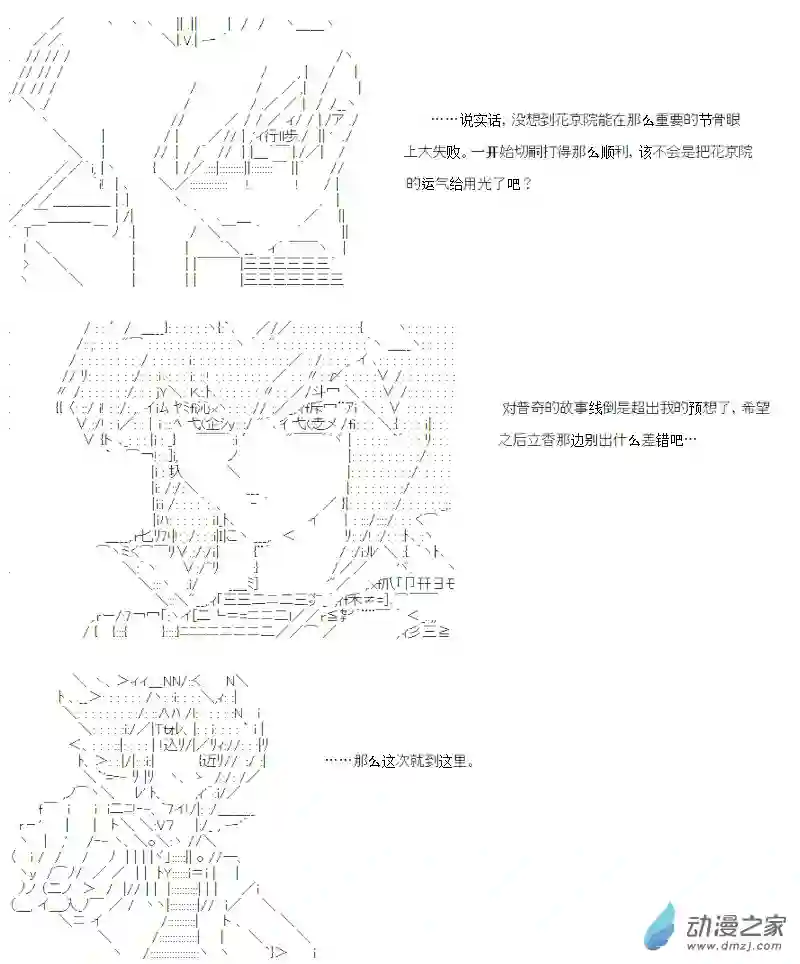 ……说实话，没想到花京院能在那么重要的节骨眼
上大失败。一开始切嗣打得那么顺利，该不会是把花京院
的运气给用光了吧？
对普奇的故事线倒是超出我的预想了，希望
之后立香那边别出什么差错吧…
……那么这次就到这里。
动漫之家
www.dmzj.com